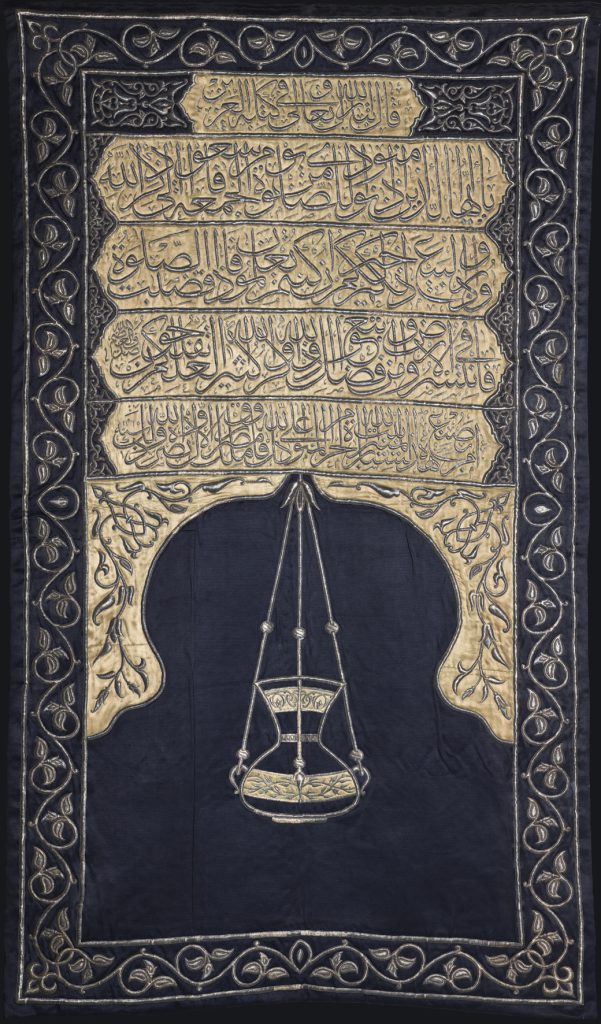 قال الله تبارك وتعالى في كتابه العزيز
يا ايها الذين آمنوا اذا نودي للصلوة من يوم الجمعة فاسعوا الى ذكر الله
وذروا البيع ذلكم خير لكم ان كنتم تعلمون فاذا قضيت الصلوة
فانتشروا في الارض وابتغوا من فضل الله واذكروا الله كثيرا لعلكم تفلحون
امر بصنع هذه الستارة